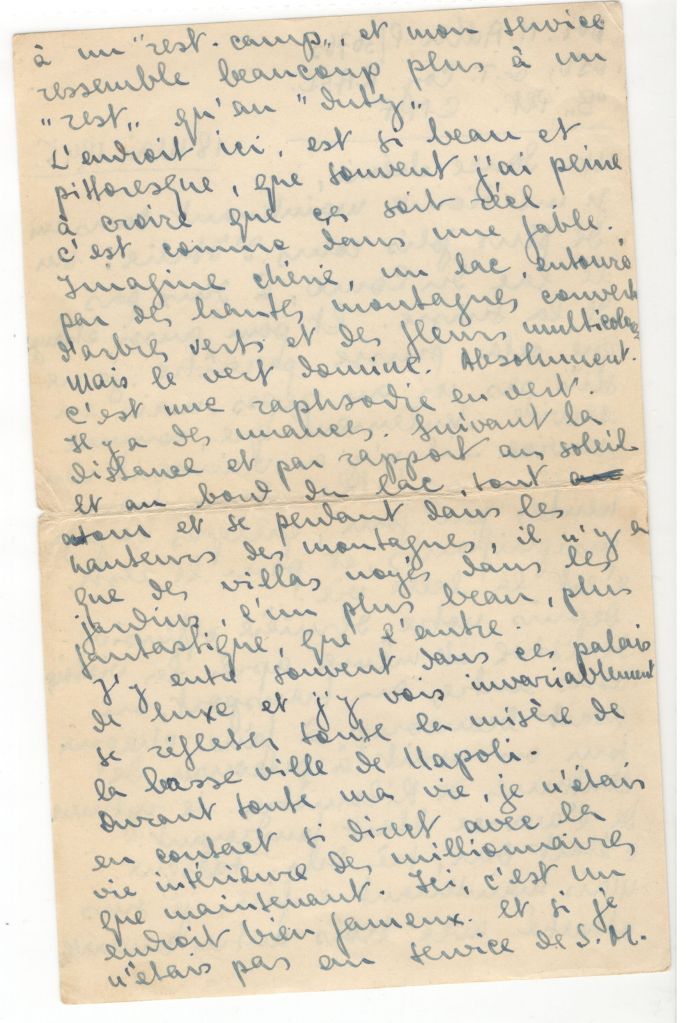 à un "rest-camp", et mon service
ressemble beaucoup plus à un
"rest", qu'au "duty".
L'endroit ici, est si beau et
pittoresque, que souvent j'ai peine
à croire que ces soit réel.
C'est comme dans une fable.
Imagine chérie un lac, entouré
par des hautes montagnes couverts
d'arbres verts et des fleurs multicolores
Mais le vert domine. Absolument.
c'est une raphsodie en vert.
Il y a des nuances. Suivant la
distance et par rapport au soleil
Et au bord du lac, tout
autour et se perdant dans les
hauteurs des montagnes, il n'y a
que des villas noyés dans les
jardins, l'un plus beau, plus
fantastique, que l'autre.
J'y entre souvent dans ces palais
de luxe et j'y vois invariablement
se réfleter toute la misère de
la basse ville de Napoli.
Durant toute ma vie, je n'étais
en contact si direct avec la
vie intérieure des millionnaires
que maintenant. Ici, c'est un
endroit bien fameux. Et si je
n'étais pas au service de S.M.